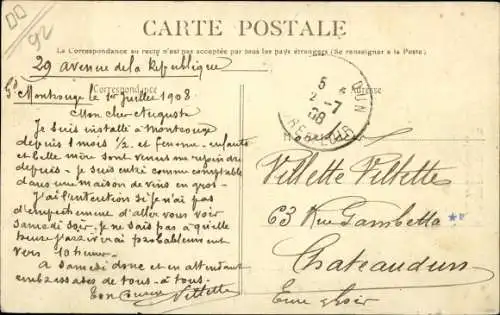 92
CARTE POSTALE
La Correspondance au recto n'est pas acceptée par tous les pays étrangers (Se renseigner à la Poste)
29 avenue de la République
Correspondance
Adresse
Gd Montrouge le 1er Juillet 1908
Mon cher Auguste
Je suis installé à Montrouge
depuis 1 mois 1/2 et femme - enfants
et belle mère sont venus me rejoindre
depuis - Je suis entré comme comptable
dans une maison de vins en gros -
J'ai l'intention si je n'ai pas
d'empêchement d'aller vous voir
samedi soir. Je ne sais pas à quelle
heure j'arriverai probablement
vers 10 heures -
A samedi donc et en attendant
embrassades de tous - à tous -
Ton Cousin Villette
5
2 - 7
08
DUN
Monsieur
Villette Villette
63 Rue Gambetta
Chateaudun
Eure & Loir